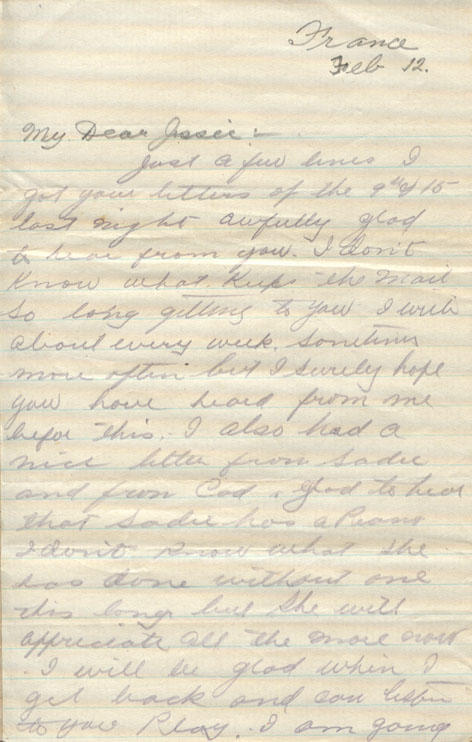 France
Feb 12.
My Dear Jessie:-
Just a few lines I
got your letters of the 9th & 15
last night awfully glad
to hear from you. I don't
Know what Keeps the Mail
so long getting to you I write
about every week. Sometimes
more often but I surely hope
you have heard from me
before this. I also had a
nice letter from Sadie
and from Cod. glad to hear
that Sadie has a Piano
I don't Know what she
has done without one
this long but she will
appreciate all the more now
I will be glad when I
get back and can listen
to you Play. I am going